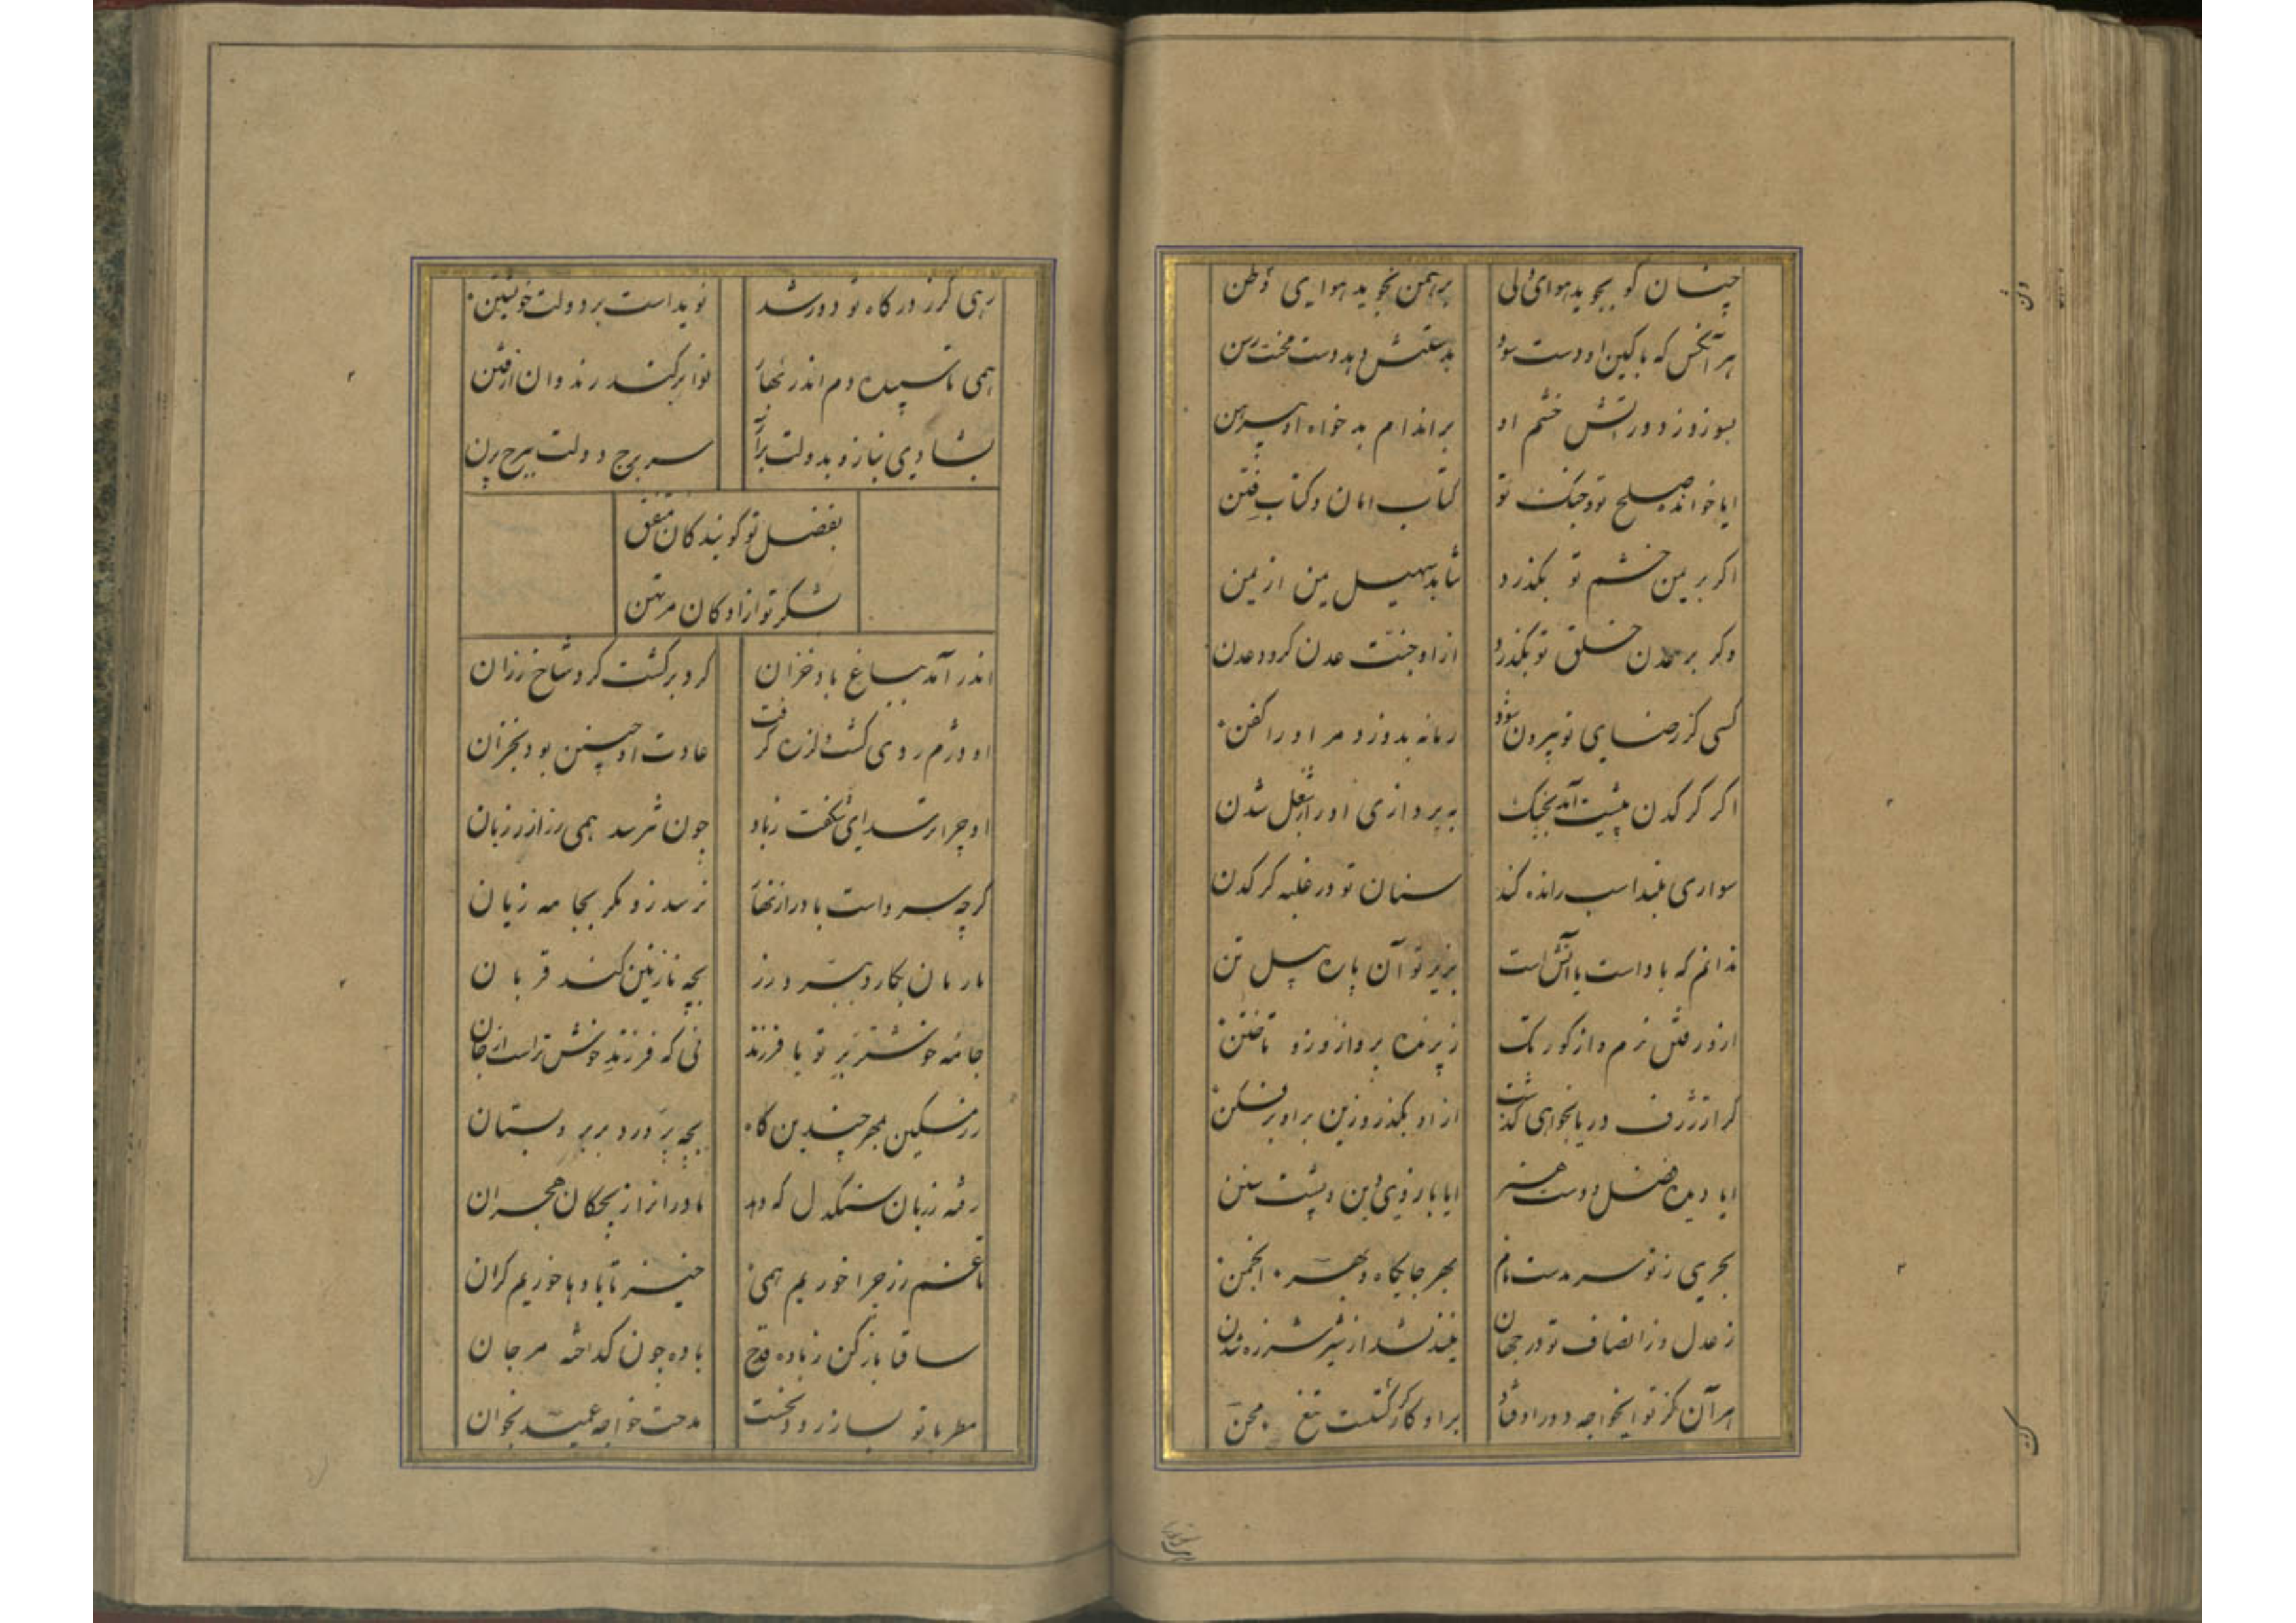 چنان کو بجوید هوای ولی	برهمن نجوید هوایی وطن
هر آنکس که با کین او دست سود	بدعتش دهد دست محنت رسن
بسوزد ز دور آتش خشم او	بر اندام بدخواه او پیرهن
ایا خوانده صلح تو و جنک تو	کتاب امان و کتاب فتن
اکر بر یمن خشم تو بکذرد	نتابد سهیل یمن از یمن
وکر بر عدن خلق تو بکذرد	از او جنت عدن کردد عدن
کسی کز رضای تو بیرون شود	زمانه بدوزد مر او را کفن
اکر کرکدن پیشت آید بجنک	به پردازی او را ز شغل شدن
سواری بلند اسب رانده کند	سنان تو در غلبه کرکدن
ندانم که باد است یا آتش است	بزیر تو آن پاره پیل تن
از و رفتن نرم و از کور تک	ز پرنده پرواز وزو تاختن
کر از ژرف دریا بخواهی کذشت	از او بکذر و زین بر او بر فکن
ایا دیده فضل و دست هنر	ایا بازوی دین و پشت سنن
بحری ز تو سر مدست نام	بهر جایکاه و بهر انجمن
ز عدل و ز انصاف تو در جهان	شدن
هر آن کز تو ایخواجه دور اوفتاد	بر او کارکر کشت تیغ محن
رهی کز در کاه تو دور شد	نوید است بر دولت خویشتن
همی تا سپیده دم اندر بهار	نوا بر کند رندوان از فتن
بشادی بناز و بدولت بر آر	سر برج دولت ببرج پرن
بفضل تو کویندکان متفق
بشکر تو ازادکان مرتهن
اندر آمد بباغ باد خزان	کرد برکشت کرد شاخ رزان
او دژم روی کشت و لرزه کرفت	عادت او چنین بود بخزان
او چرا ترسد ای شکفت ز باد	چون نترسد همی رز از رزبان
کرچه سرد است باد را ز نهاد	نرسد زو مکر بجامه زیان
بازمان بکارد ببرد رز	بچه نازنین کند قربان
جامه خوشتر بر تو یا فرزند	نی که فرزند خوش تر است از جان
رز مسکین بمهر چندین کاه	بچه پرورد ببر و پستان
رفته رزبان سنکدل که دهد	مادرانرا از بچکان هجران
تا غم رز چرا خوریم همی	خیز تا باده‌ها خوریم کران
ساقیا باز کن ز باده قدح	باده چون کداخته مرجان
مطربا تو بساز رود نخست	مدحت خواجه عمید بخوان